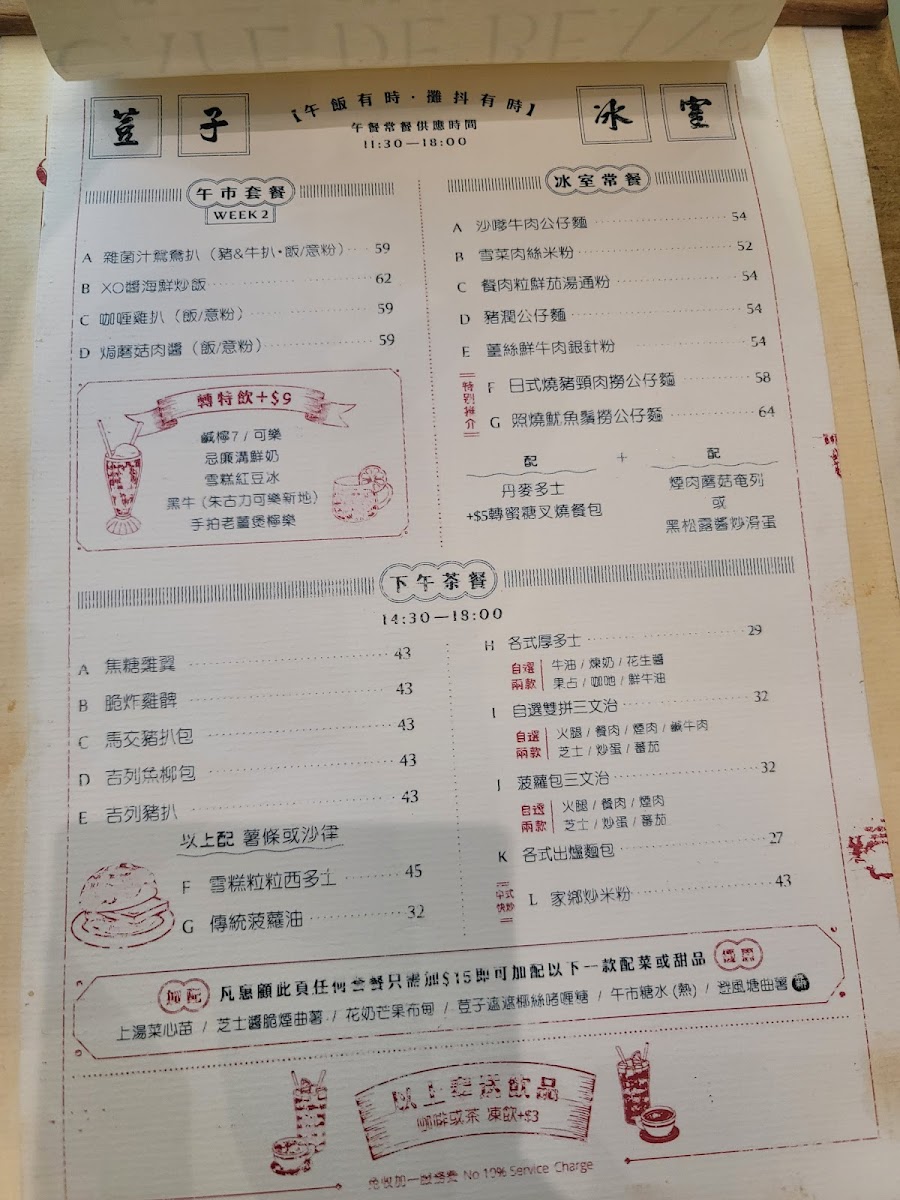 荳子
【午飯有時·攤抖有時】
午餐常餐供應時間
11:30—18:00
冰室
午市套餐
WEEK 2
A 雜菌汁鴛鴦扒（豬&牛扒•飯/意粉） 59
B XO醬海鮮炒飯 62
C 咖喱雞扒（飯/意粉） 59
D 焗磨菇肉醬（飯/意粉） 59
轉特飲+$9
鹹檸7 / 可樂
忌廉溝鮮奶
雪糕紅豆冰
黑牛 (朱古力可樂新地)
手拍老薑煲檸樂
冰室常餐
A 沙嗲牛肉公仔麵 54
B 雪菜肉絲米粉 52
C 餐肉粒鮮茄湯通粉 54
D 豬潤公仔麵 54
E 薑絲鮮牛肉銀針粉 54
特別推介
F 日式燒豬頸肉撈公仔麵 58
G 照燒魷魚鬚撈公仔麵 64
配
丹麥多士
+$5轉蜜糖叉燒餐包
+
配
煙肉蘑菇奄列
或
黑松露醬炒滑蛋
下午茶餐
14:30—18:00
A 焦糖雞翼 43
B 脆炸雞髀 43
C 馬交豬扒包 43
D 吉列魚柳包 43
E 吉列豬扒 43
以上配 薯條或沙律
F 雪糕粒粒西多士 45
G 傳統菠蘿油 32
H 各式厚多士 29
自選兩款
牛油 / 煉奶 / 花生醬
果占 / 咖吔 / 鮮牛油
I 自選雙拼三文治 32
自選兩款
火腿 / 餐肉 / 煙肉 / 鹹牛肉
芝士 / 炒蛋 / 蕃茄
J 菠蘿包三文治 32
自選兩款
火腿 / 餐肉 / 煙肉
芝士 / 炒蛋 / 蕃茄
K 各式出爐麵包 27
L 家鄉炒米粉 43
加配
凡惠顧此頁任何套餐只需加$15即可加配以下一款配菜或甜品
優惠
上湯菜心苗 / 芝士醬脆煙曲薯 / 花奶芒果布甸 / 荳子遠遠椰絲啫喱糖 / 午市糖水 (熱) / 避風塘曲薯 新
以上奉送飲品
咖啡或茶 凍飲+$3
免收加一服務費 No 10% Service Charge